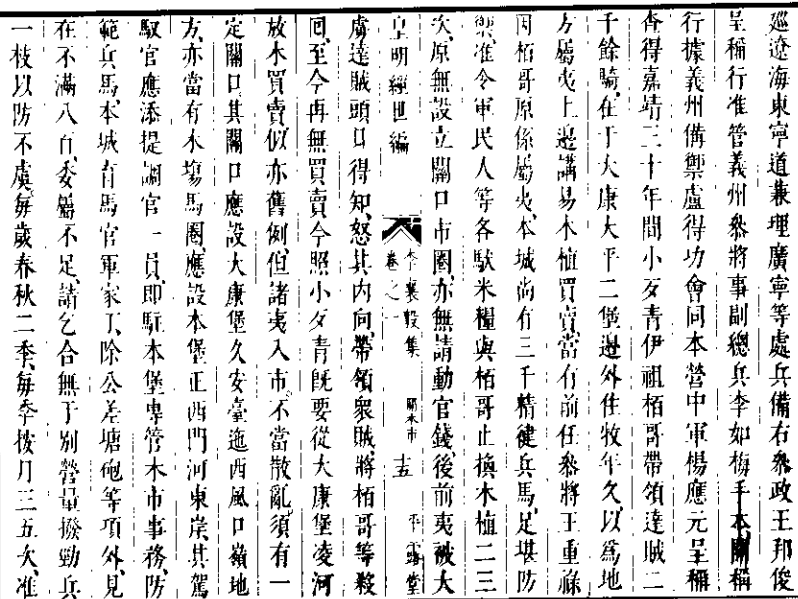 巡遼海東寧道兼理廣寧等處兵備右叅政王邦俊
呈稱行准管義州叅將事副總兵李如梅手本關稱
行據義州備禦盧得功會同本營中軍楊應元呈稱
查得嘉靖三十年間小歹青伊祖栢哥帶領達賊二
千餘騎在于大康大平二堡邊外住牧年久以爲地
方屬夷上邊講易木植買賣當有前任叅將王重祿
因栢哥原係屬夷本城尚有三千精健兵馬足堪防
禦准令軍民人等各馱米糧與栢哥止換木植二三
次原無設立關口市圈亦無請動官錢後前夷被大
皇明經世編 卷之一 李襄毅集 關木市 十五 平露堂
虜達賊頭目得知怒其内向帶領衆賊將栢哥等殺
回至今再無買賣今照小歹青旣要從大康堡凌河
放木買賣似亦舊例但諸夷入市不當散亂須有一
定關口其關口應設大康堡久安臺迤西風口嶺地
方亦當有木塲馬圈應設本堡正西門河東岸其駕
馭官應添提調官一員即駐本堡專管木市事務防
範兵馬本城有馬官軍家丁除公差塘砲等項外見
在不滿八百委屬不足請乞合無于別營量撥勁兵
一枝以防不虞每歲春秋二季每季按月三五次准